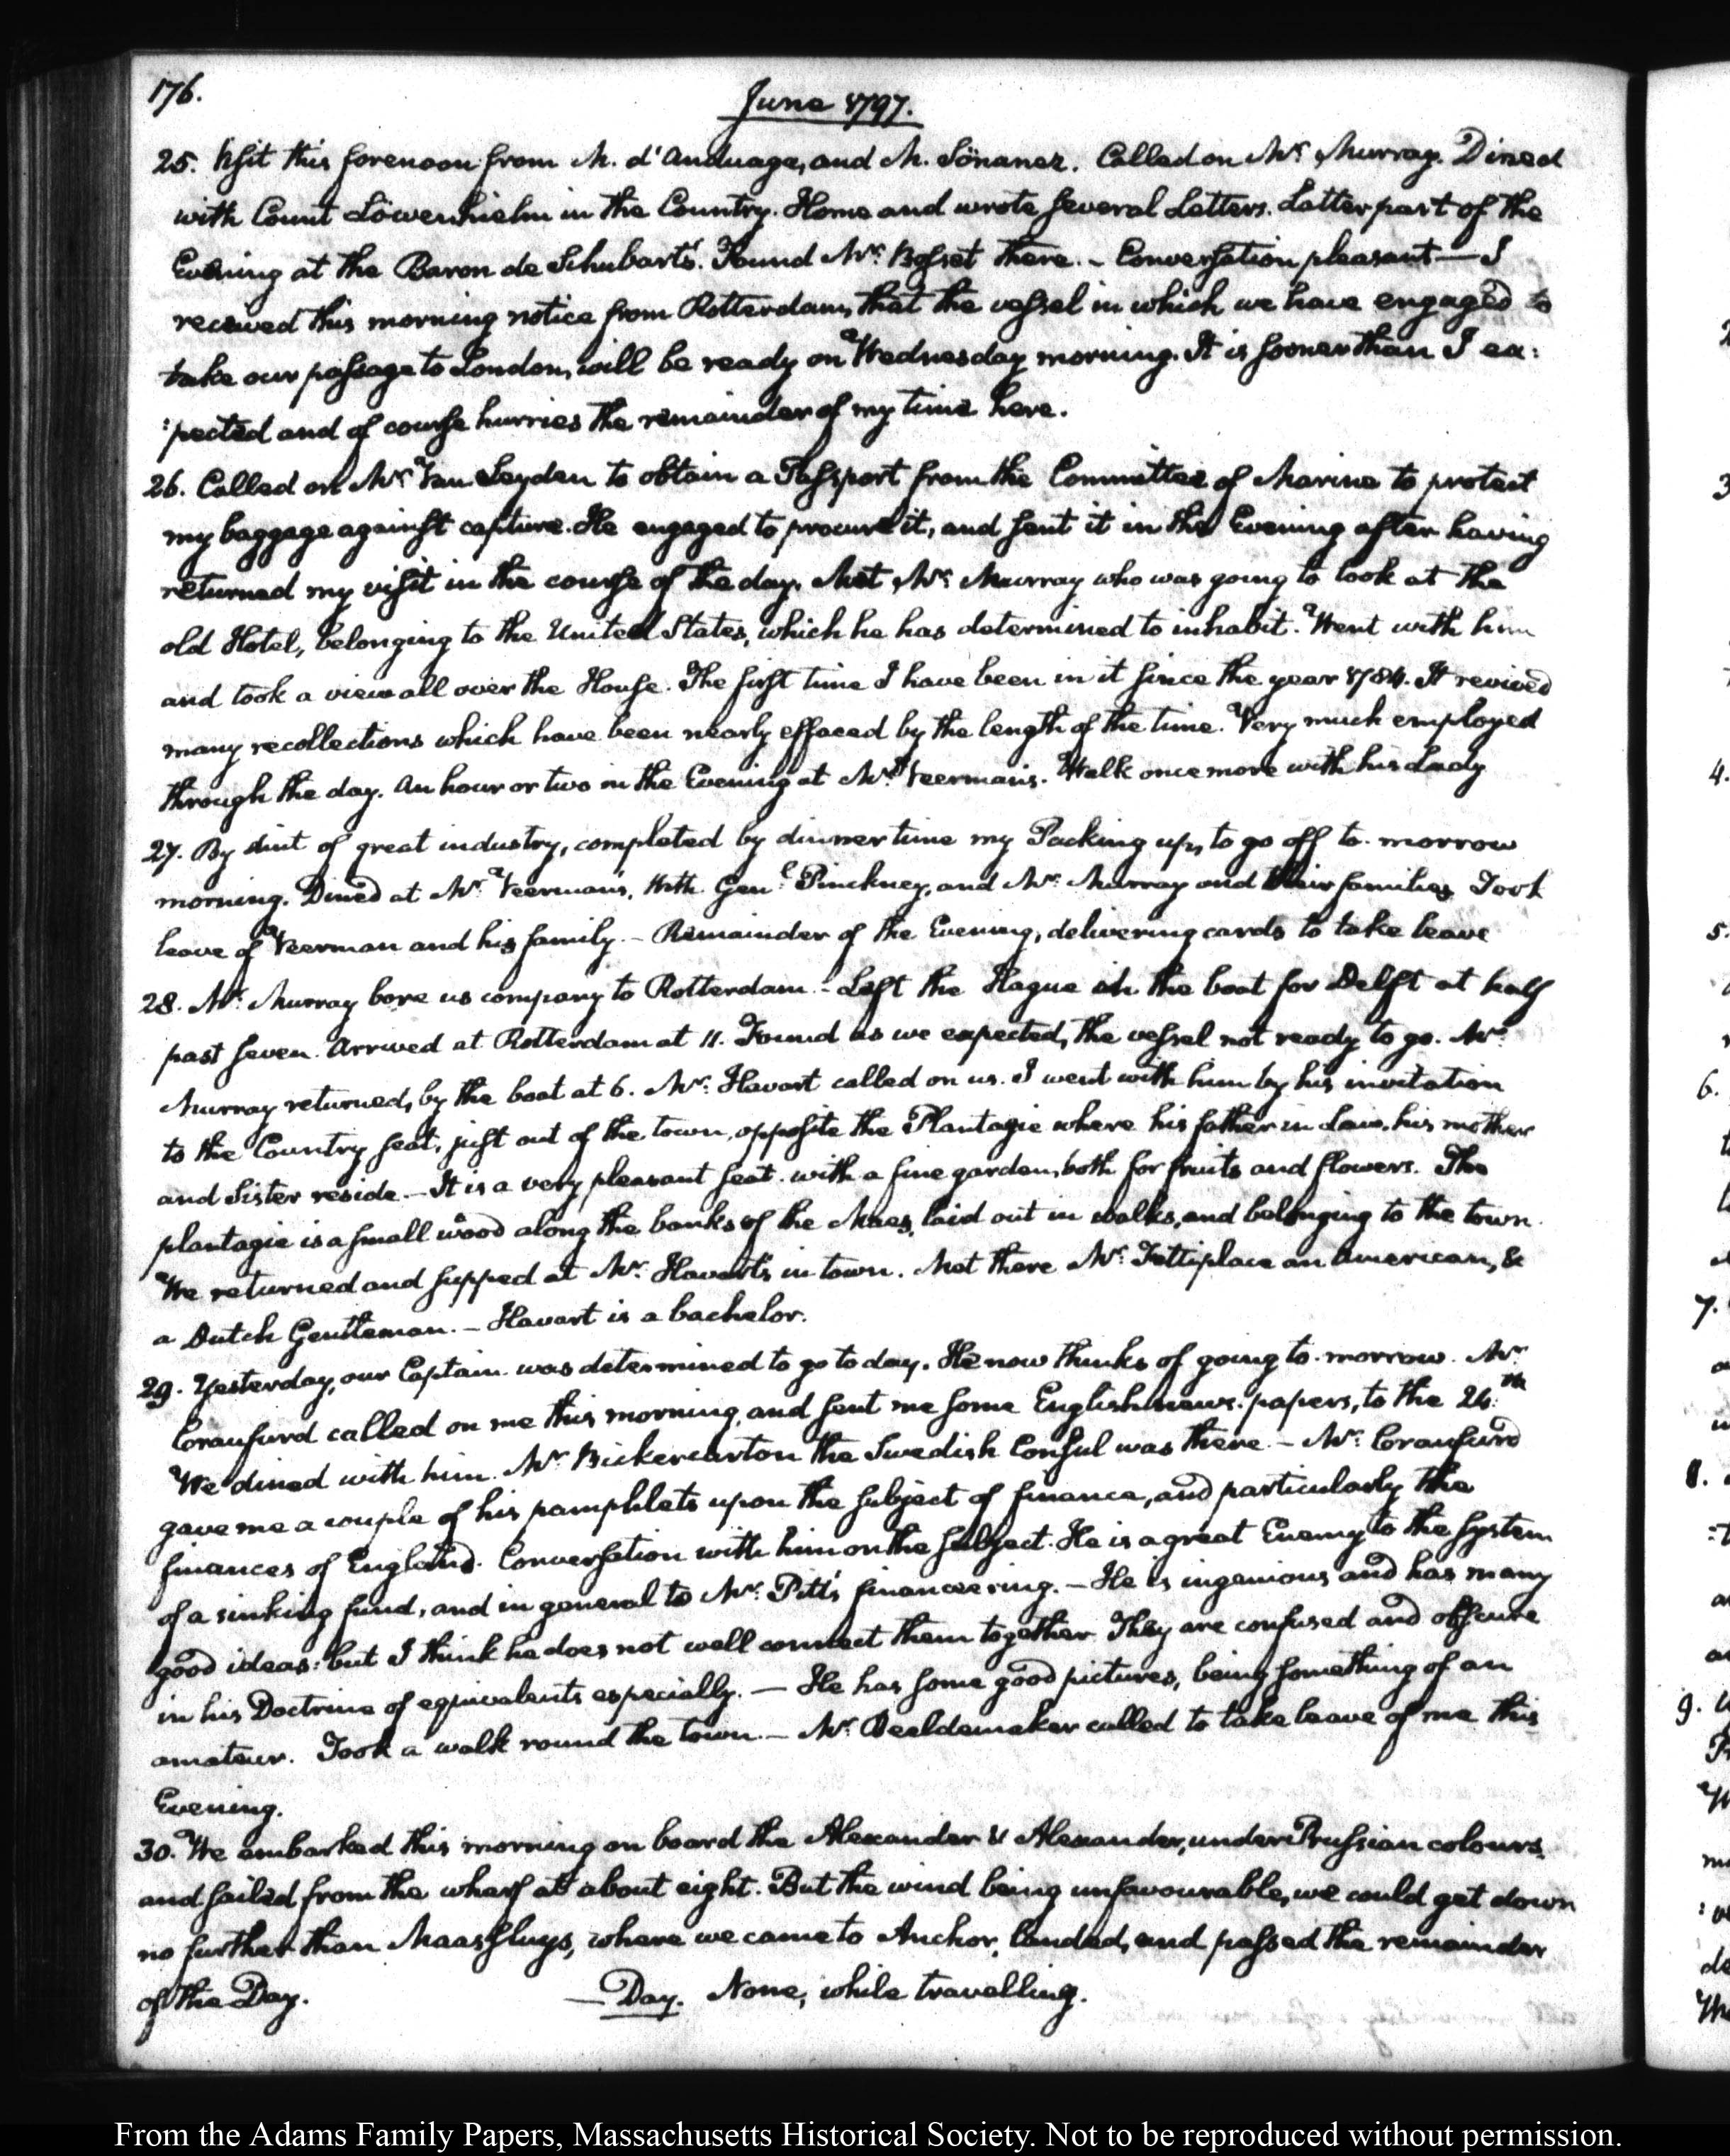 176.
June 1797.
25. Visit this forenoon from M. d'Anduaga, and M. Sönaner. Called on Mr. Murray. Dined
with Count Löwenhielm in the Country. Home and wrote several Letters. Latter part of the
Evening at the Baron de Schubart's. Found Mr. Bosset there. – Conversation pleasant — I
received this morning notice from Rotterdam, that the vessel in which we have engaged to
take our passage to London, will be ready on Wednesday morning. It is sooner than I ex:
:pected and of course hurries the remainder of my time here.
26. Called on Mr. Van Leyden to obtain a Passport from the Committee of Marine to protect
my baggage against capture. He engaged to procure it, and sent it in the Evening after having
returned my visit in the course of the day. Met Mr. Murray who was going to look at the
old Hotel, belonging to the United States, which he has determined to inhabit. Went with him
and took a view all over the House. The first time I have been in it since the year 1784. It revived
many recollections which have been nearly effaced by the length of the time. Very much employed
through the day. An hour or two in the Evening at Mr. Veerman's. Walk once more with his Lady
27. By dint of great industry, completed by dinner time my Packing up, to go off to-morrow
morning. Dined at Mr. Veerman's, with Genl. Pinckney, and Mr. Murray and their families. Took
leave of Veerman and his family. – Remainder of the Evening, delivering cards to take leave
28. Mr. Murray bore us company to Rotterdam. – Left the Hague in the boat for Delft at half
past seven. Arrived at Rotterdam at 11. Found as we expected, the vessel not ready to go. Mr.
Murray returned, by the boat at 6. Mr. Havart called on us. I went with him by his invitation
to the Country seat, just out of the town, opposite the Plantagie where his father in law, his mother
and Sister reside. – It is a very pleasant seat. with a fine garden, both for fruits and flowers. The
plantagie is a small wood along the banks of the Maes, laid out in walks, and belonging to the town.
We returned and supped at Mr. Havart's in town. Met there Mr. Fettiplace an American, &
a Dutch Gentleman. – Havart is a bachelor.
29. Yesterday, our Captain was determined to go to day. He now thinks of going to-morrow. Mr.
Craufurd called on me this morning, and sent me some English news-papers, to the 24.th
We dined with him. Mr. Bickercarton the Swedish Consul was there. – Mr. Craufurd
gave me a couple of his pamphlets upon the subject of finance, and particularly the
finances of England. Conversation with him on the subject. He is a great Enemy to the system
of a sinking fund, and in general to Mr. Pitt's financeering. – He is ingenious and has many
good ideas: but I think he does not well connect them together. They are confused and obscure
in his Doctrine of equivalents especially. — He has some good pictures, being something of an
amateur. Took a walk round the town. – Mr. Beeldemaker called to take leave of me this
Evening.
30. We embarked this morning on board the Alexander & Alexander, under Prussian colours,
and sailed from the wharf at about eight. But the wind being unfavourable, we could get down
no further than Maassluys, where we came to Anchor, landed, and passed the remainder
of the Day. — Day. None, while travelling.
From the Adams Family Papers, Massachusetts Historical Society. Not to be reproduced without permission.